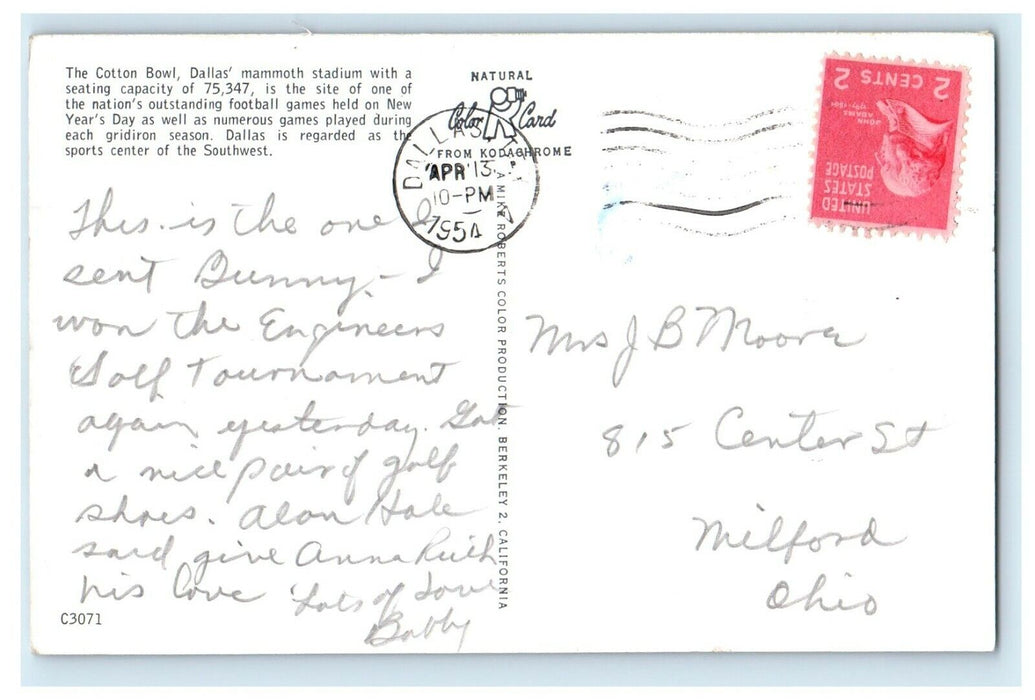 The Cotton Bowl, Dallas' mammoth stadium with a
seating capacity of 75,347, is the site of one of
the nation's outstanding football games held on New
Year's Day as well as numerous games played during
each gridiron season. Dallas is regarded as the
sports center of the Southwest.
NATURAL
Color Card
FROM KODACHROME
DALLAS
APR 13
10-PM
1954
2 CENTS 2
JOHN
ADAMS
1797-1801
UNITED
STATES
POSTAGE
A MIKE ROBERTS COLOR PRODUCTION, BERKELEY 2, CALIFORNIA
This is the one I
sent Bunny - I
won the Engineers
Golf Tournament
again yesterday. Got
a nice pair of golf
shoes. Alan Hale
said give Anna Ruth
his love Lots of Love
Bobby
C3071
Mrs J B Moore
815 Center St
Milford
Ohio